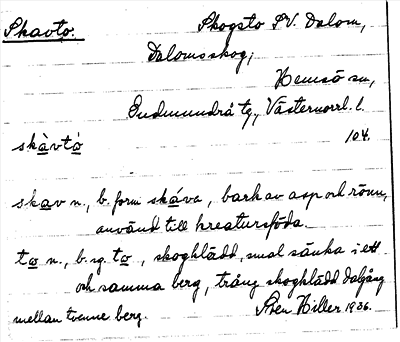 Skavto. Skogsto SV. Dalom,
Dalomsskog,
Hemsö sn,
Gudmundrå tg., Västernorrl. l.
skàvtò 104.
skav n., b. form skáva, bark av asp och rönn,
använd till kreatursföda.
to n., b. sg. to, skogklädd, smal sänka i ett
och samma berg, trång skogklädd dalgång
mellan tvenne berg. Sten Hiller 1936.